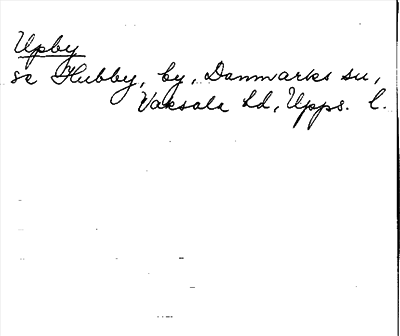 Upby
se Hubby, by, Danmarks sn,
Vaksala hd, Upps. l.